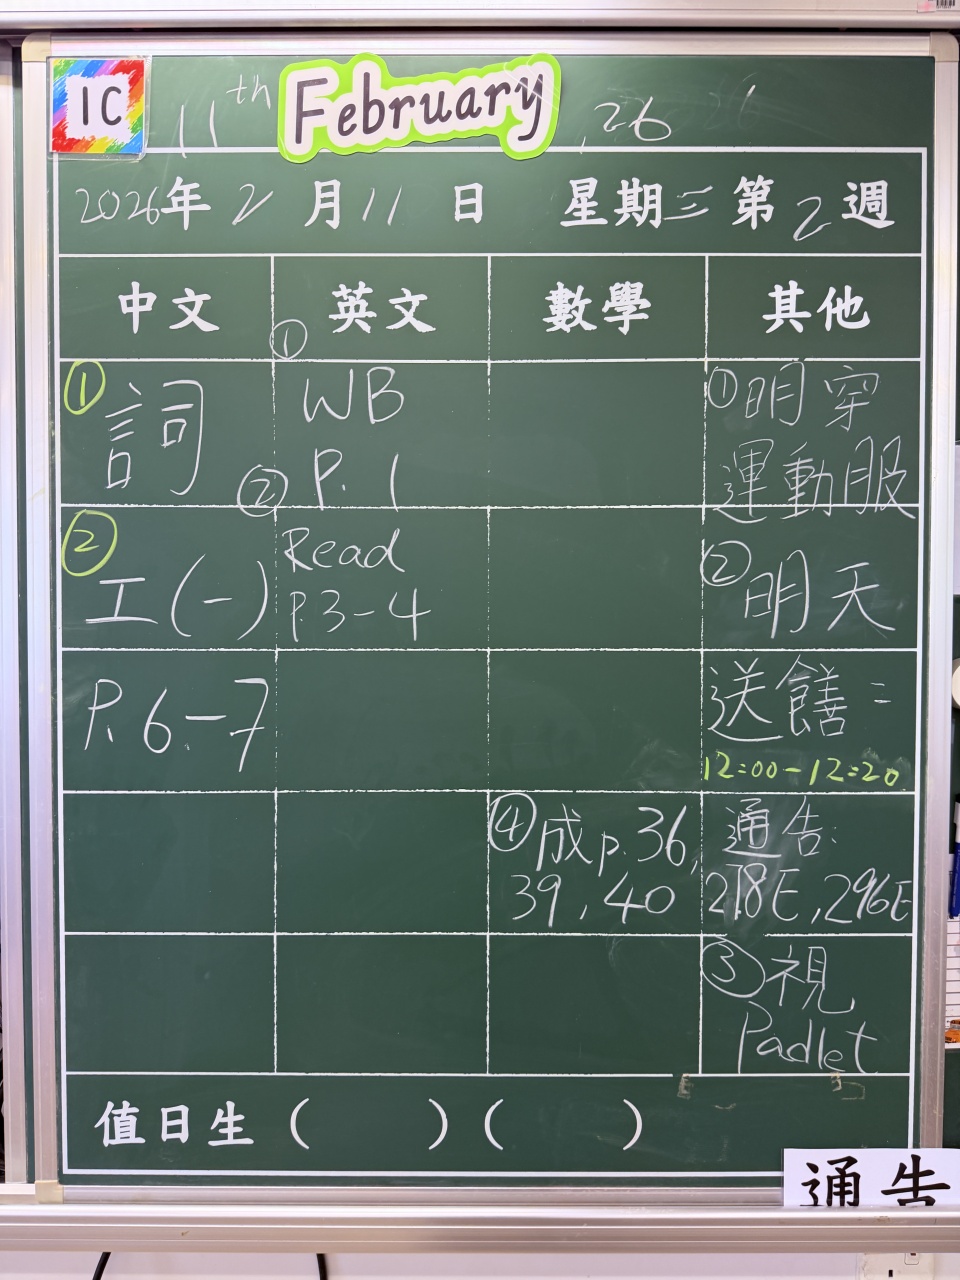 1C
11th February, 26
2026年2月11日 星期三 第2週
中文 英文 數學 其他
① 詞
② 工(一)
P. 6-7
① WB
P. 1
② Read
P.3-4
④ 成 p.36,
39, 40
① 明穿
運動服
② 明天
送饍:
12:00-12:20
通告:
278E, 296E
③ 視
Padlet
值日生 ( ) ( )
通告